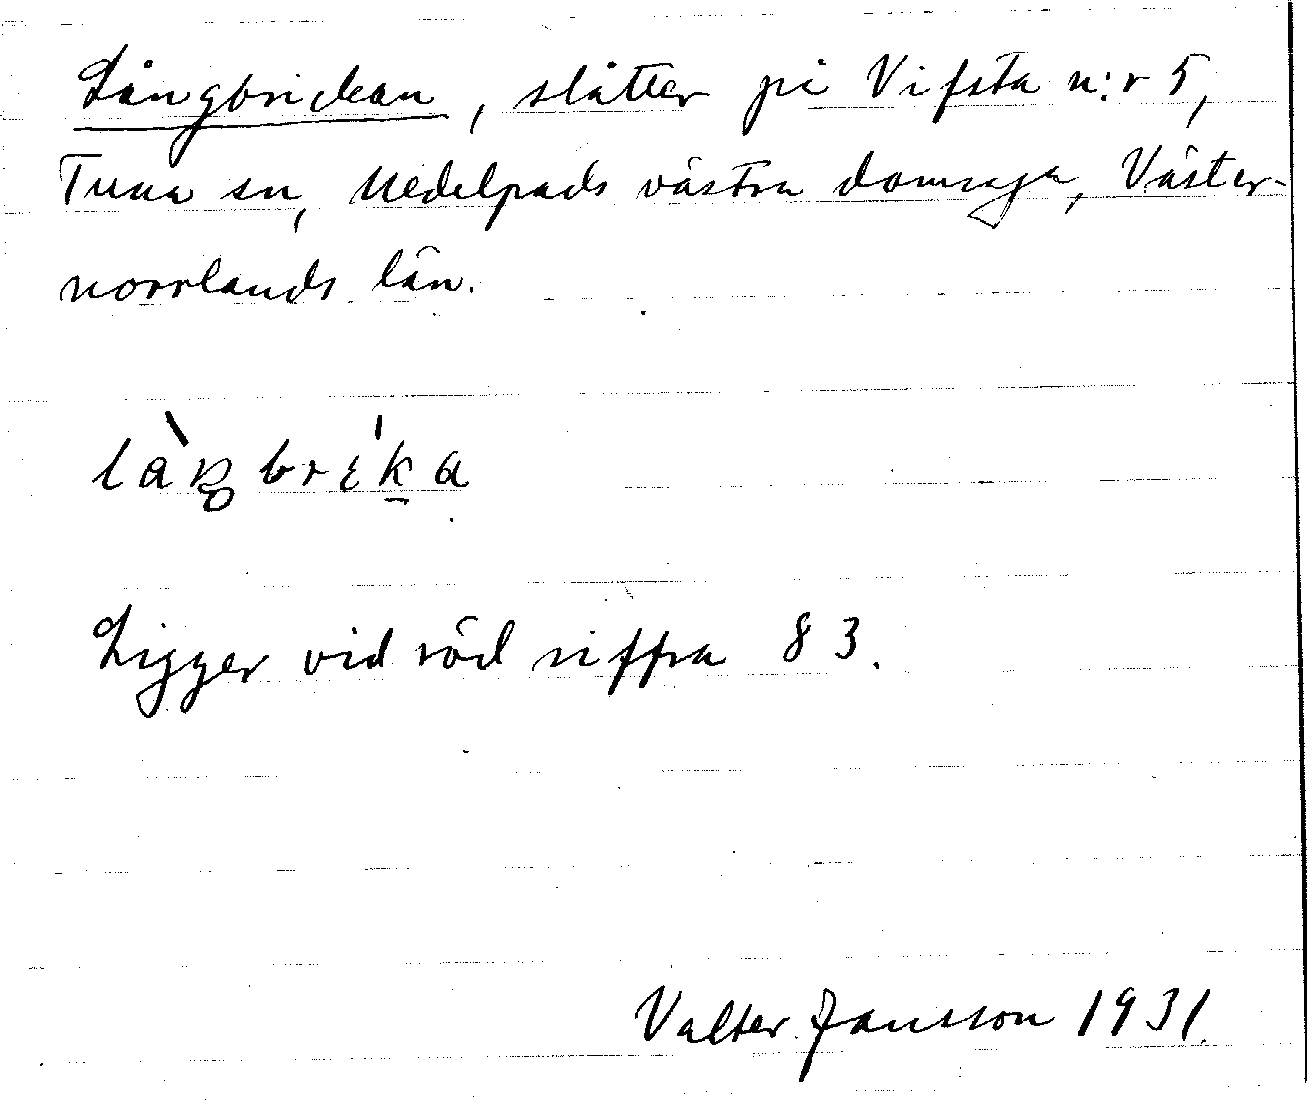 Långbrickan, slåtter på Vifsta n:r 5,
Tuna sn, Medelpads västra domsaga, Väster-
norrlands län.
Ligger vid röd siffra 83.
Valter Jansson 1931.